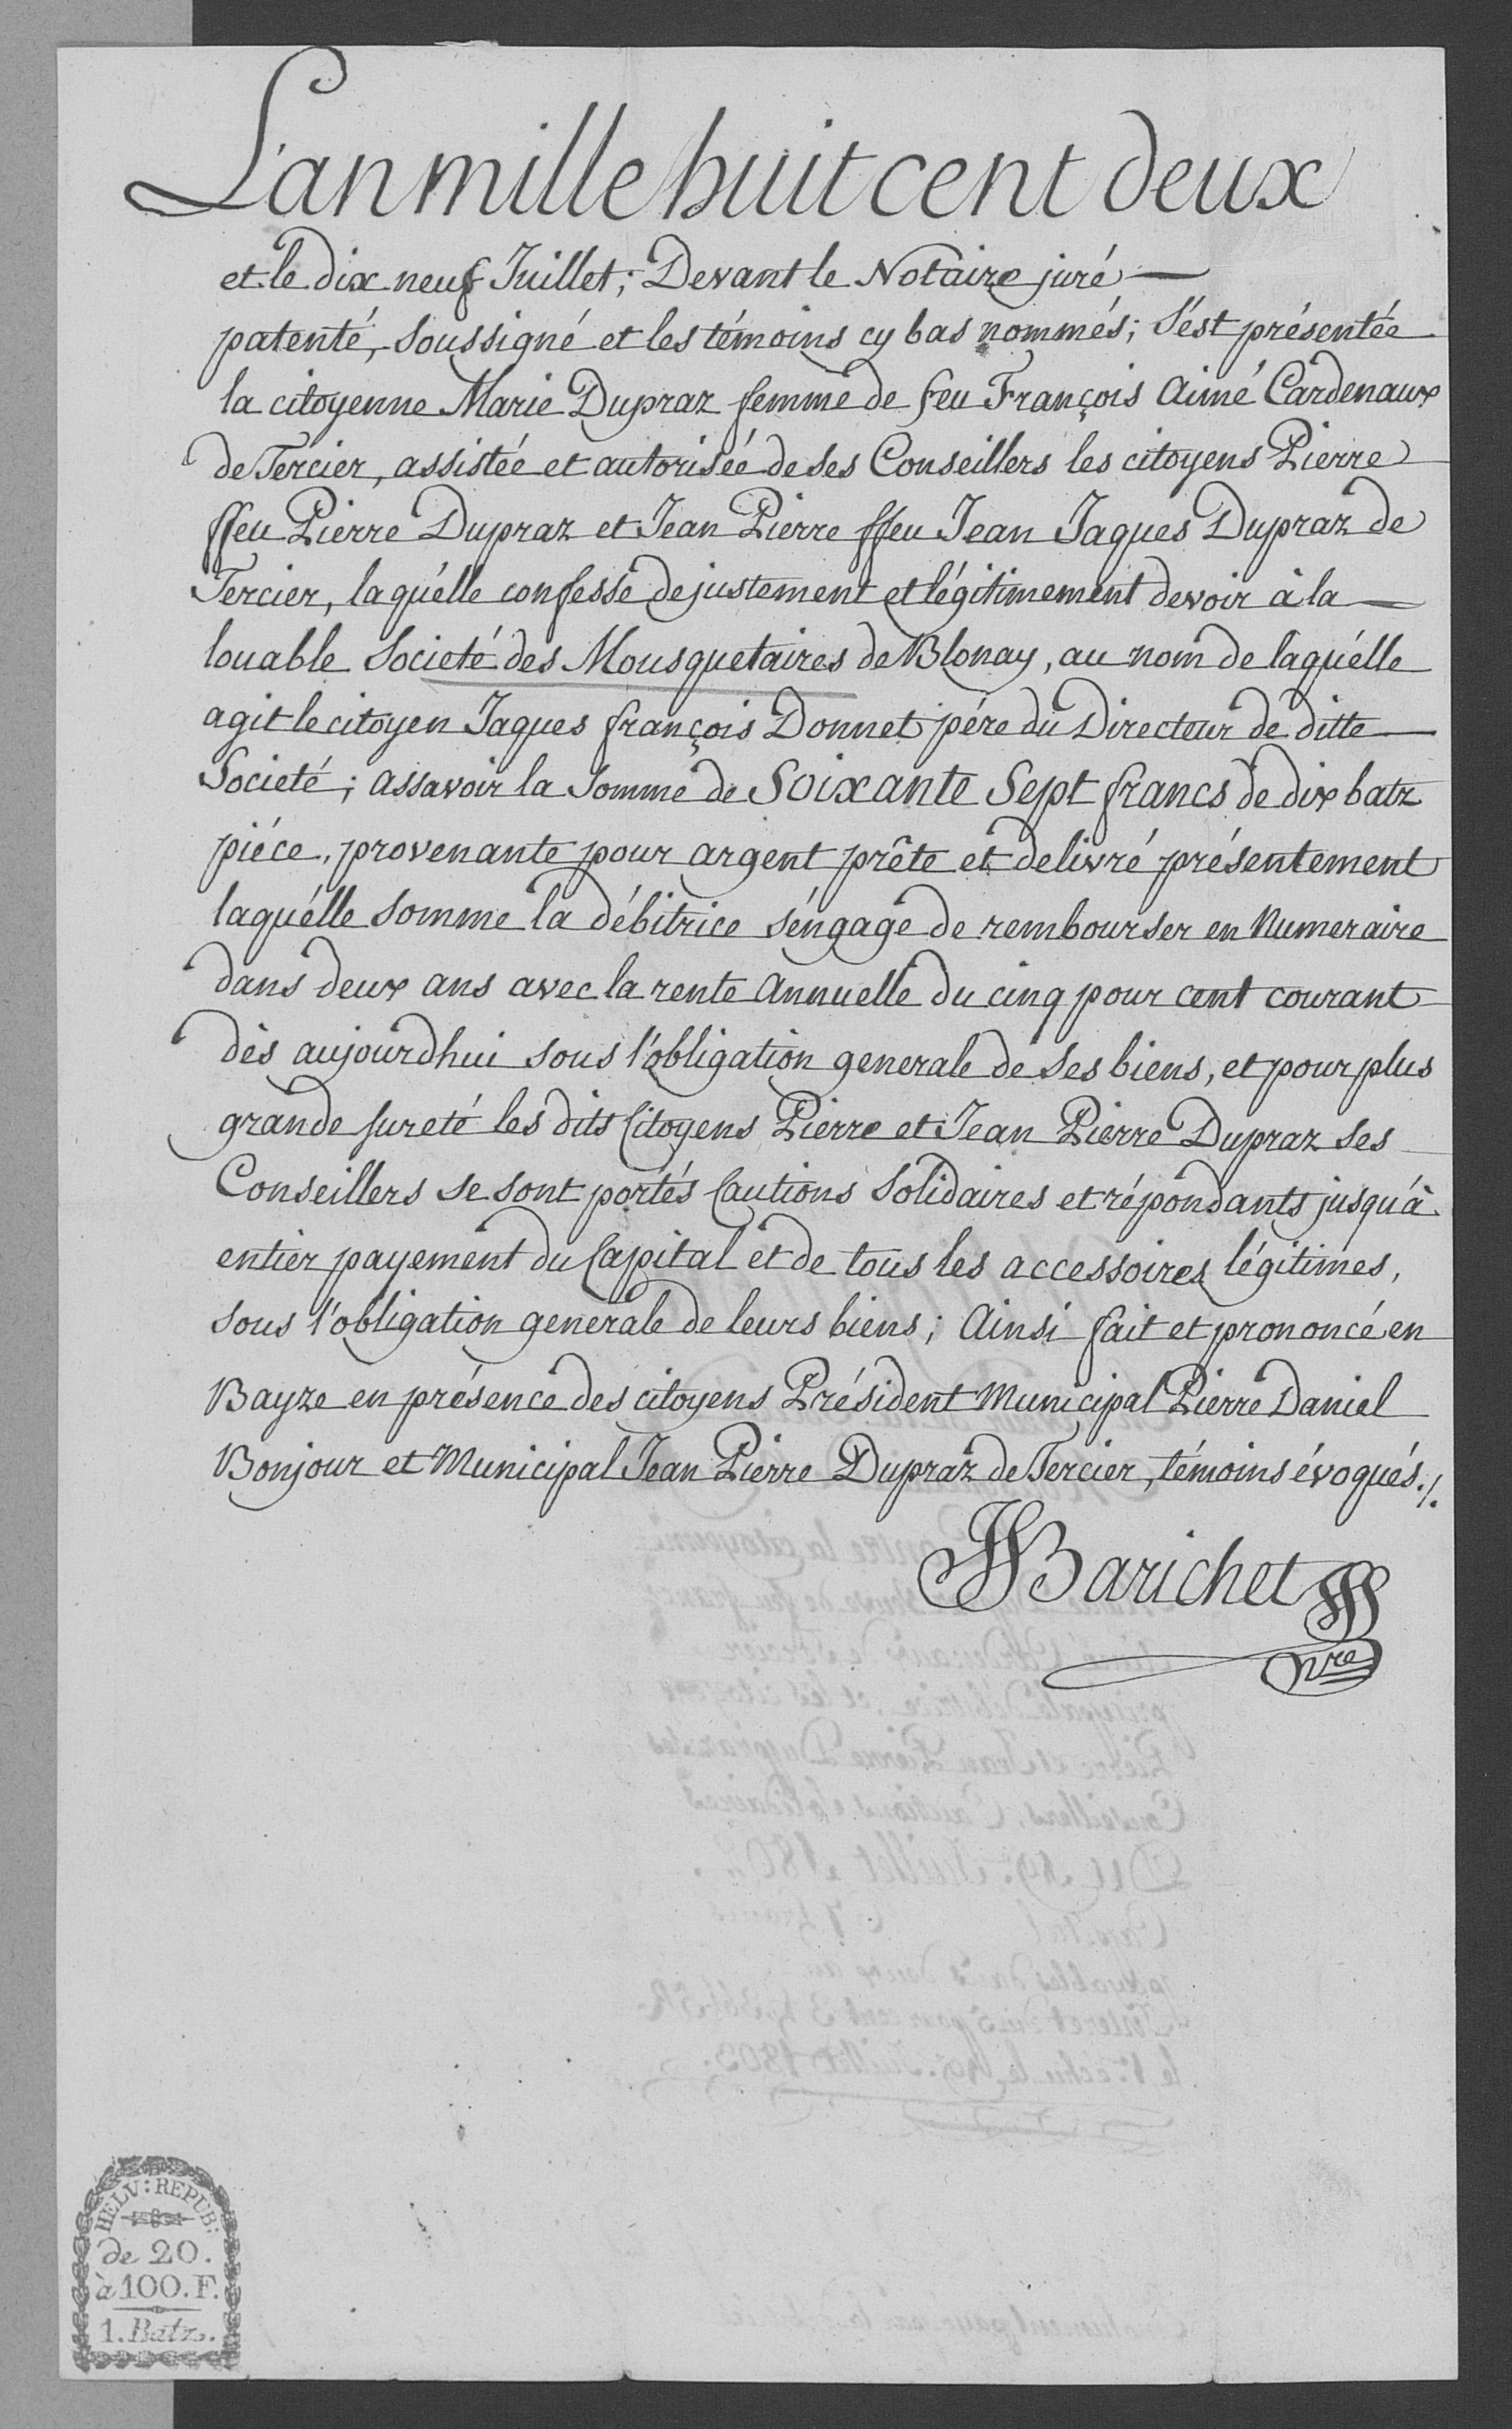 L'an mille huit cent deux
et le dix neuf Juillet; Devant le Notaire juré
patenté, soussigné et les témoins cy bas nommés; s'est présentée
la citoyenne Marie Dupraz femme de feu François Aimé Cardenaux
de Tercier, assistée et autorisée de ses Conseillers les citoyens Pierre
ffeu Pierre Dupraz et Jean Pierre ffeu Jean Jaques Dupraz de
Tercier, laquélle confesse de justement et légitimement devoir à la
louable Societé des Mousquetaires de Blonay, au nom de laquélle
agit le citoyen Jaques françois Donnet pére du Directeur de ditte
Societé; assavoir la somme de Soixante Sept francs de dix batz
piéce, provenante pour argent prête et delivré présentement
laquélle somme la débitrice s'éngage de rembourser en Numeraire
dans deux ans avec la rente Annuelle du cinq pour cent courant
dès aujourdhui sous l'obligation generale de ses biens, et pour plus
grande sureté les dits Citoyens Pierre et Jean Pierre Dupraz ses
Conseillers se sont portés Cautions Solidaires et répondants jusqu'à
entier payement du Capital et de tous les accessoires légitimes,
sous l'obligation generale de leurs biens; Ainsi fait et prononcé en
Bayze en présence des citoyens Président Municipal Pierre Daniel
Bonjour et Municipal Jean Pierre Dupraz de Tercier, témoins évoqués./.
Barichet
nre
HELV: REPUB:
de 20.
à 100. F.
1. Batz.